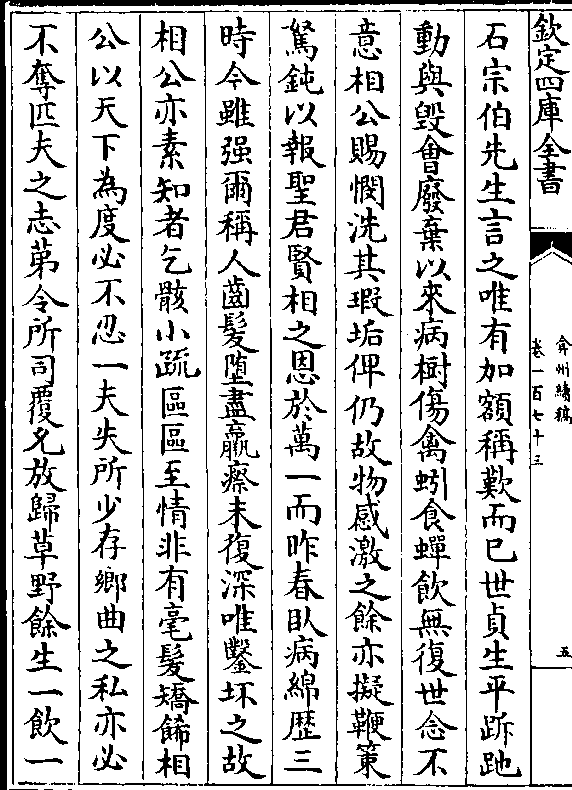 欽定四庫全書
弇州續稿
卷一百七十三
五
石宗伯先生言之唯有加額稱歎而已世貞生平跅跎
動與毀會廢棄以來病樹傷禽蚓食蟬飲無復世念不
意相公賜憫洗其瑕垢俾仍故物感激之餘亦擬鞭策
駑鈍以報聖君賢相之恩於萬一而昨春臥病綿歷三
時今雖强爾稱人齒髮堕盡羸瘵未復深唯鑿坏之故
相公亦素知者乞骸小疏區區至情非有毫髮矯餙相
公以天下為度必不忍一夫失所少存鄉曲之私亦必
不奪匹夫之志苐令所司覆允放歸草野餘生一飲一